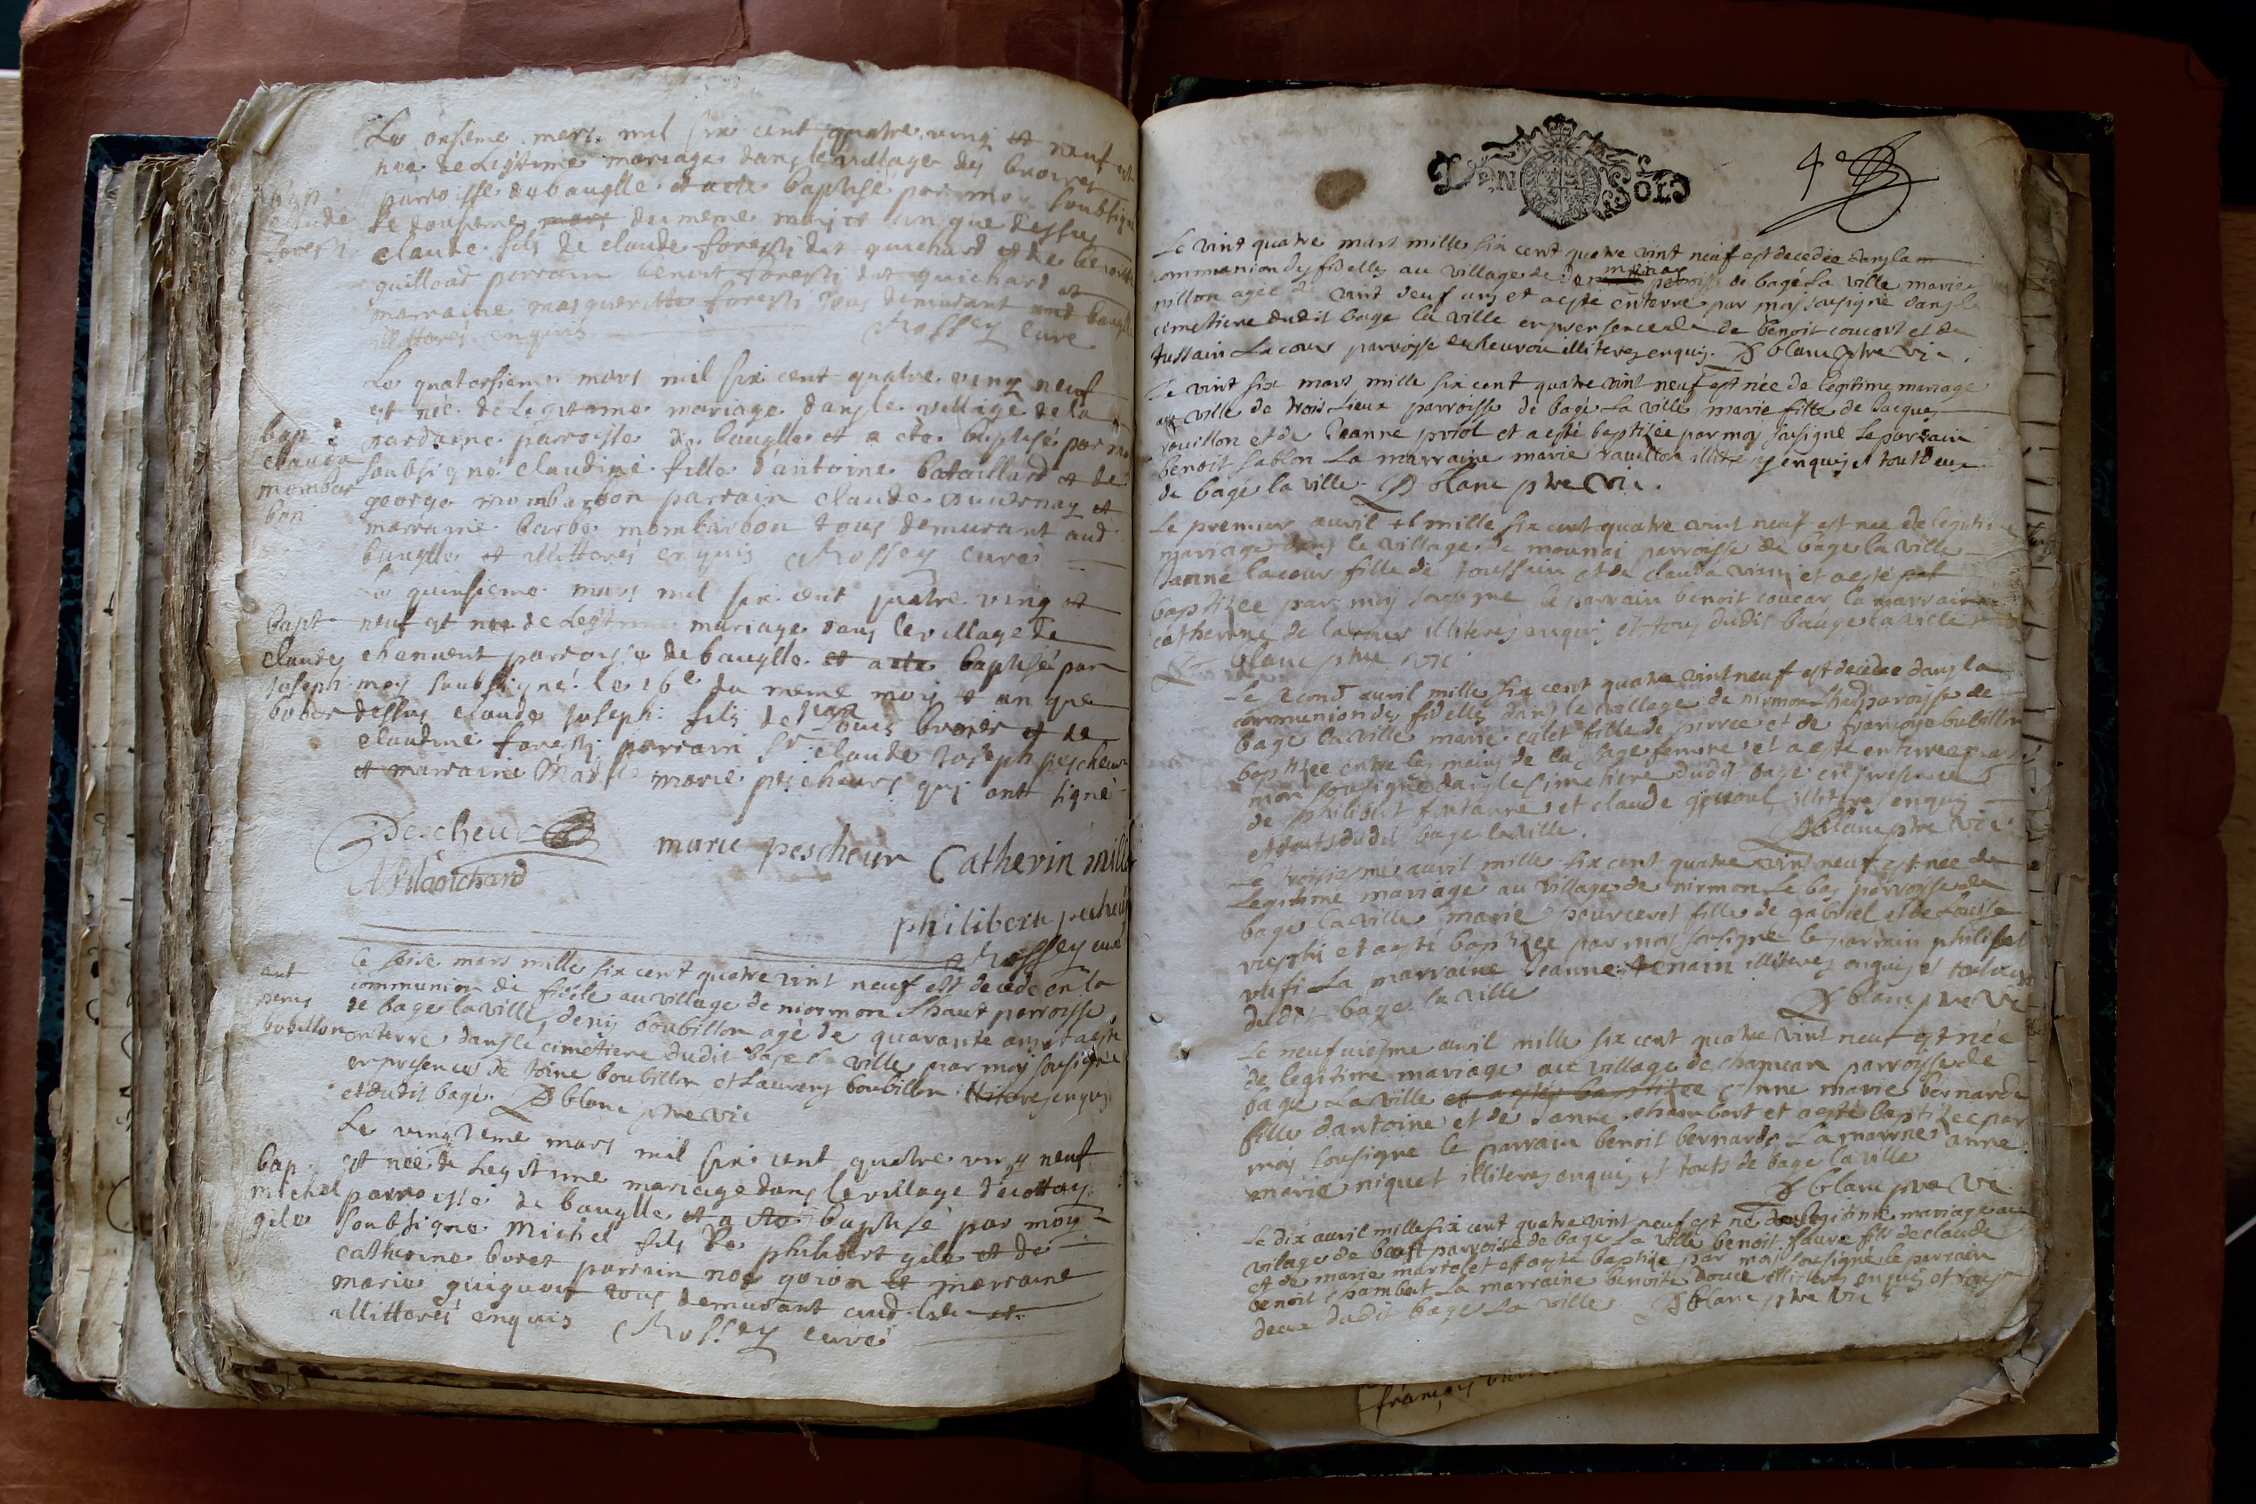 Le onsieme mars mil six cent quatre ving et neuf est
nee de Legitime mariage dans le village des broires
parroisse de bauglle et a ete baptisé par moy soubsigné
le dousieme mars du meme mois et an que dessus
claude fils de claude foresti dit guichard et de benoite
guilloud parrain benoit foresti dit guichard et
marraine marguerite foresti tous demurant aud bauglle
illitterés enquis Rossey curé
Le quatorsieme mars mil six cent quatre ving neuf
est née de Legitime mariage dans le village de la
nardaine parroisse de bauglle et a ete baptisé par moy
soubsigné claudine fille d'antoine bataillard et de
george mombarbon parrain claude
marraine barbe mombarbon tous demurant aud
bauglle et illitterés enquis Rossey curé
bap
claude
mombar
bon
Le quinsieme mars mil six cent quatre ving et
neuf est nee de Legitime mariage dans le village de
chanvent parroisse de bauglle et a ete baptisé par
moy soubsigné le 16e du meme mois et an que
dessus claude Joseph fils de Jean Louis broyer et de
claudine foresti parrain Sr claude Joseph pescheur
et marraine marie pescheurs qui ont signé
bapt
claude
Joseph
Pescheur marie pescheur Catherin
philibert pescheur
Rossey curé
Le seise mars mille six cent quatre vint neuf est decede en la
communion di fidele au village de niormon Lhaut parroisse
de bage la ville denis boubillon agé de quarante ans et a esté
enterré dans le cimetiere dudit bage la ville par moy sousigné
en presence de toine boubillon et Laurens boubillon illiteres enquis
et dudit bagé D blanc ptre vic
ent
denis
bobillon
Le vingtieme mars mil six cent quatre ving neuf
est née de Legitime mariage dans le village de
parroisse de bauglle et a ete baptisé par moy
soubsigné Michel fils de philibert gile et de
catherine boret parrain noe goion et marraine
marie guigout tous demurant aud lieu et
illitterés enquis Rossey curé
bap
michel
gile
DEN SOLS
4e
Le vint quatre mars mille six cent quatre vint neuf est decedée dans la
communion des fidelles au village de monay parroisse de bagé La ville marie
nillon agée de vint neuf ans et a este enterré par moy sousigné dans le
cimetiere dudit bage la ville en presence de benoit coucart et de
tussain Lacour parroisse illiteres enquis D blanc ptre vic
Le vint six mars mille six cent quatre vint neuf est née de legitime mariage
au ville de trois Lieux parroisse de bagé La ville marie fille de Jacques
rouillon et de Jeanne priol et a esté baptisée par moy sousigné Le parrain
benoit sablon La marraine marie rauillon illiteres enquis et tout deux
de bagé la ville D blanc ptre vic
Le premier avril mille six cent quatre vint neuf est nee de legitime
mariage dans le village de mounai parroisse de bage la ville
Janne lacour fille de toussain et de clauda et a esté
baptizee par moy sousigné le parrain benoit coucar la marraine
catherine de lacour illiteres enquis et tous dudit bauge la ville
D blanc ptre vic
Le second avril mille six cent quatre vint neuf est decedée dans la
communion des fidelles dans le village de nirmon Lhaut parroisse de
bage la ville marie colet fille de pierre et de françoise bubillon
baptizée entre les mains de la sage femme et a esté enterree par
moy sousigné dans le cimetiere dudit bage en presence
de philibert fontanne et claude illiteres enquis
et touts dudit bage la ville. D blanc ptre vic
Le troisiesme avril mille six cent quatre vint neuf est née de
Legitime mariage au village de nirmon Le bas parroisse de
bage la ville marie pourceret fille de gabriel et de Louise
et a esté baptizee par moy sousigné le parrain philibert
rufi La marraine Jeanne tenain illiteres enquis et tous deux
dudit bage la ville D blanc ptre vic
Le neufuiesme avril mille six cent quatre vint neuf est née
de legitime mariage au village de chamcam parroisse de
bage La ville et a esté baptizee Anne marie bernarde
fille d'antoine et de Janne chambart et a esté baptizee par
moy sousigné le parrain benoit bernarde La marrine anne
marie niquet illiteres enquis et touts de bage la ville
D blanc ptre vic
Le dix avril mille six cent quatre vint neuf est né de legitime mariage au
village de parroisse de bage La ville benoit faure fils de claude
et de marie martelet et a esté baptisé par moy sousigné le parrain
benoit pambet La marraine benoite douce illiteres enquis et tous
deux dudit bage La ville D blanc ptre vic
françois